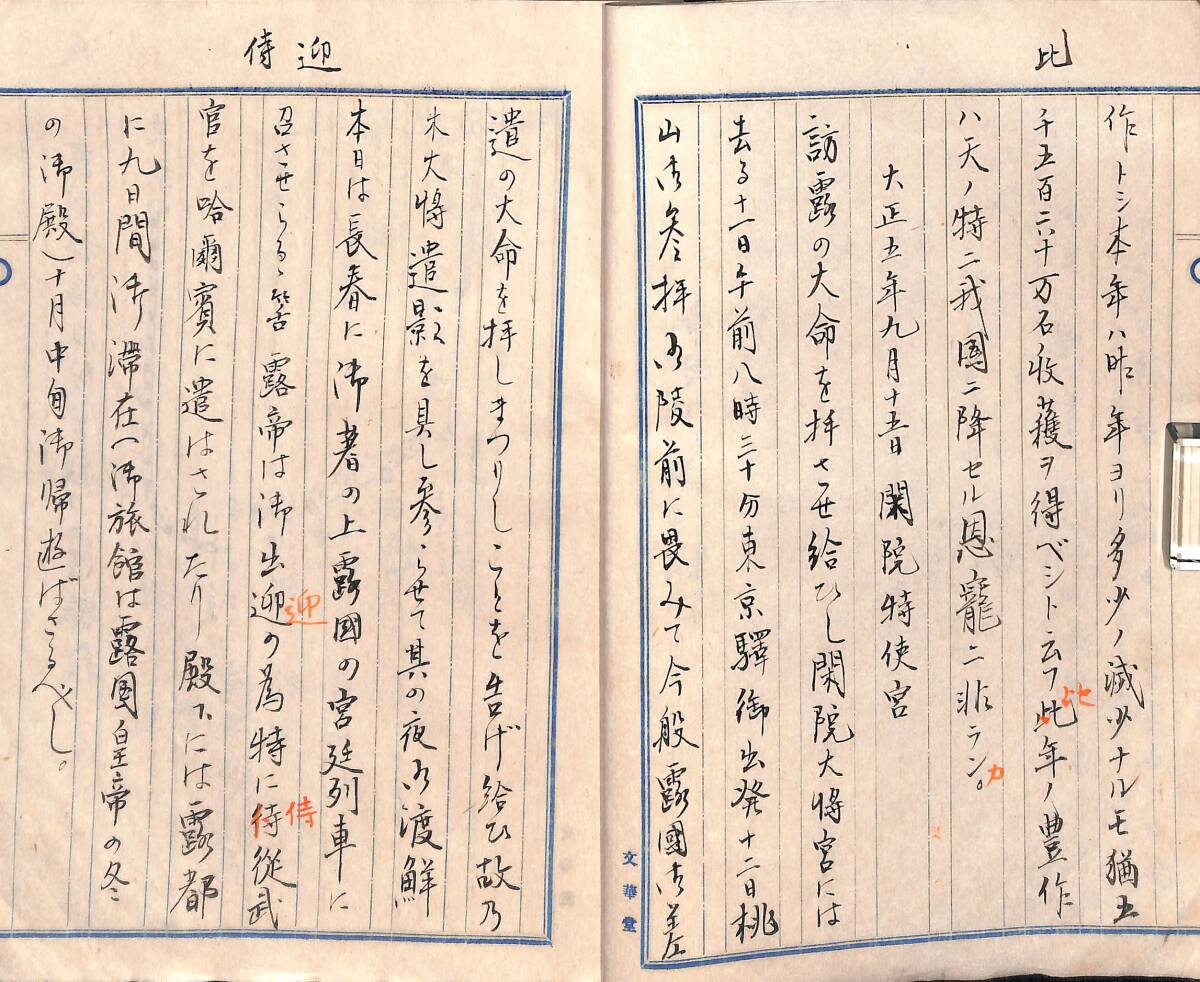 比
作トシ本年ハ昨年ヨリ多少ノ減少ナルモ猶五
千五百六十万石ノ收獲ヲ得ベシト云フ此年ノ豊作
比
ハ天ノ特ニ我國ニ降セル恩寵ニ非ランカ。
大正五年九月十五日 閑院特使宮
訪露の大命を拝させ給ひし閑院大将宮には
去る十一日午前八時三十分東京驛御出発十二日桃
山御参拝御陵前に畏みて今般露國御差
文華堂
迎 侍
遣の大命を拝しまつりしことを告げ給ひ故乃
木大将遺影を具し参らせて其の夜御渡鮮
本日は長春に御着の上露國の宮廷列車に
召させらるゝ筈露帝は御出迎の為特に待從武
迎
侍
官を哈爾賓に遣はされたり殿下には露都
に九日間御滞在(御旅館は露国皇帝の冬
の御殿)十月中旬御帰遊ばさるべし。